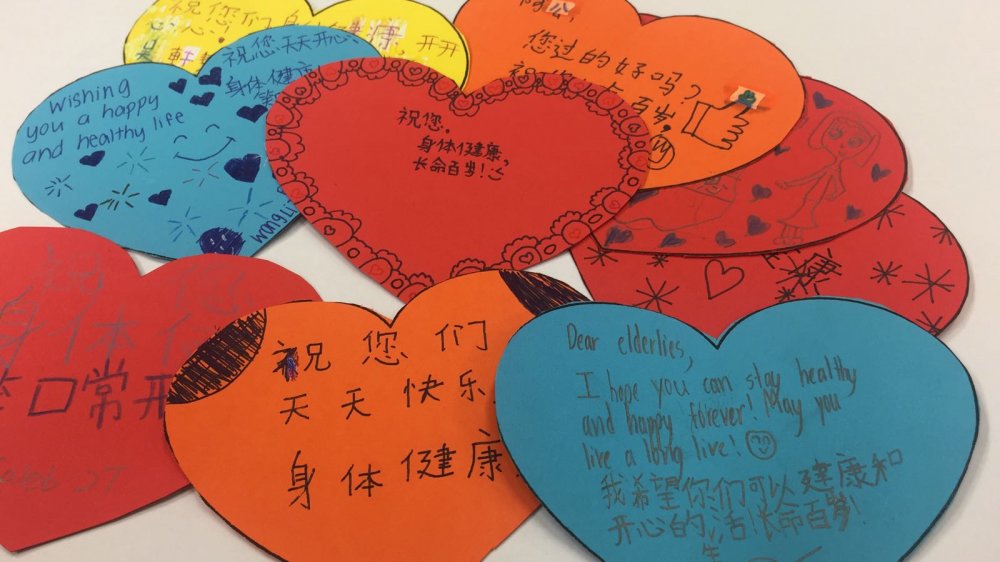 祝您们身体健康，开开
心心！
吴軒
祝您天天开心
身体健康
Wishing
you a happy
and healthy life
祝您，
身体健康，
长命百岁！
阿公，
您过的好吗？
百岁，
身体
笑口常开
祝您们
天天快乐
身体健康
Dear elderlies,
I hope you can stay healthy
and happy forever! May you
live a long live!
我希望你们可以健康和
开心的活！长命百岁！
生